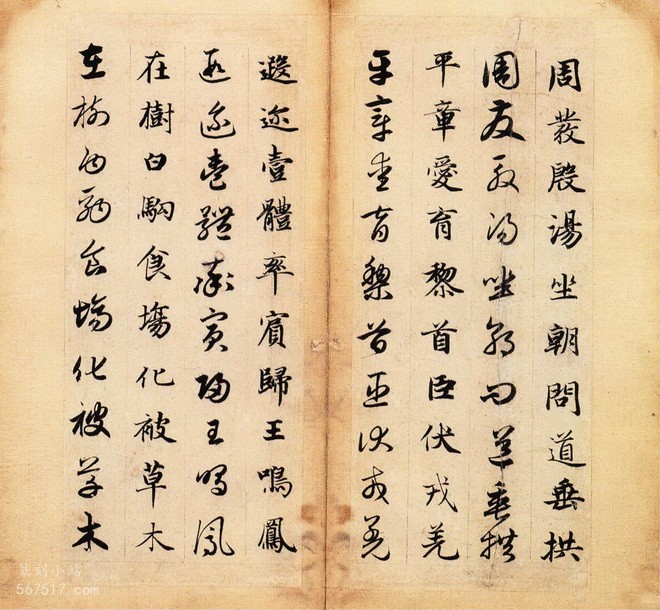 周發殷湯坐朝問道垂拱
周發殷湯坐朝問道垂拱
平章愛育黎首臣伏戎羌
平章愛育黎首臣伏戎羌
遐迩壹體率賓歸王鳴鳳
遐迩壹體率賓歸王鳴鳳
在樹白駒食塲化被草木
在樹白駒食塲化被草木
篆刻小站
567517.com